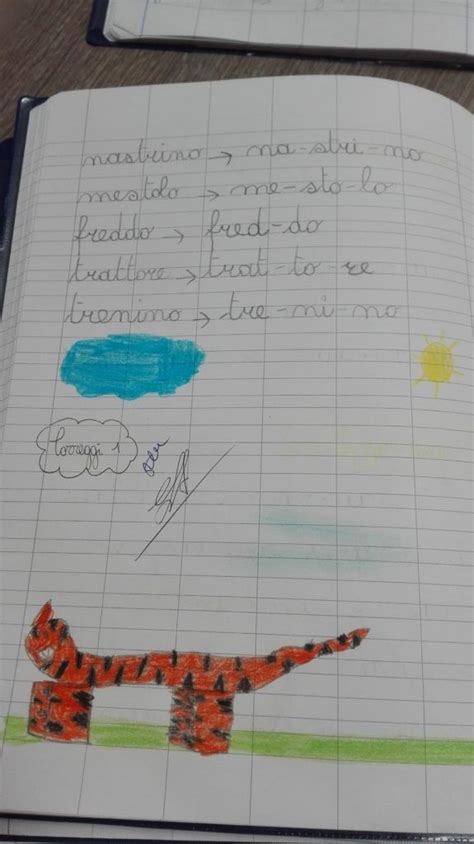 nastrino → na-stri-no
mestolo → me-sto-lo
freddo → fred-do
trattore → trat-to-re
trenino → tre-ni-no
Correggi 1